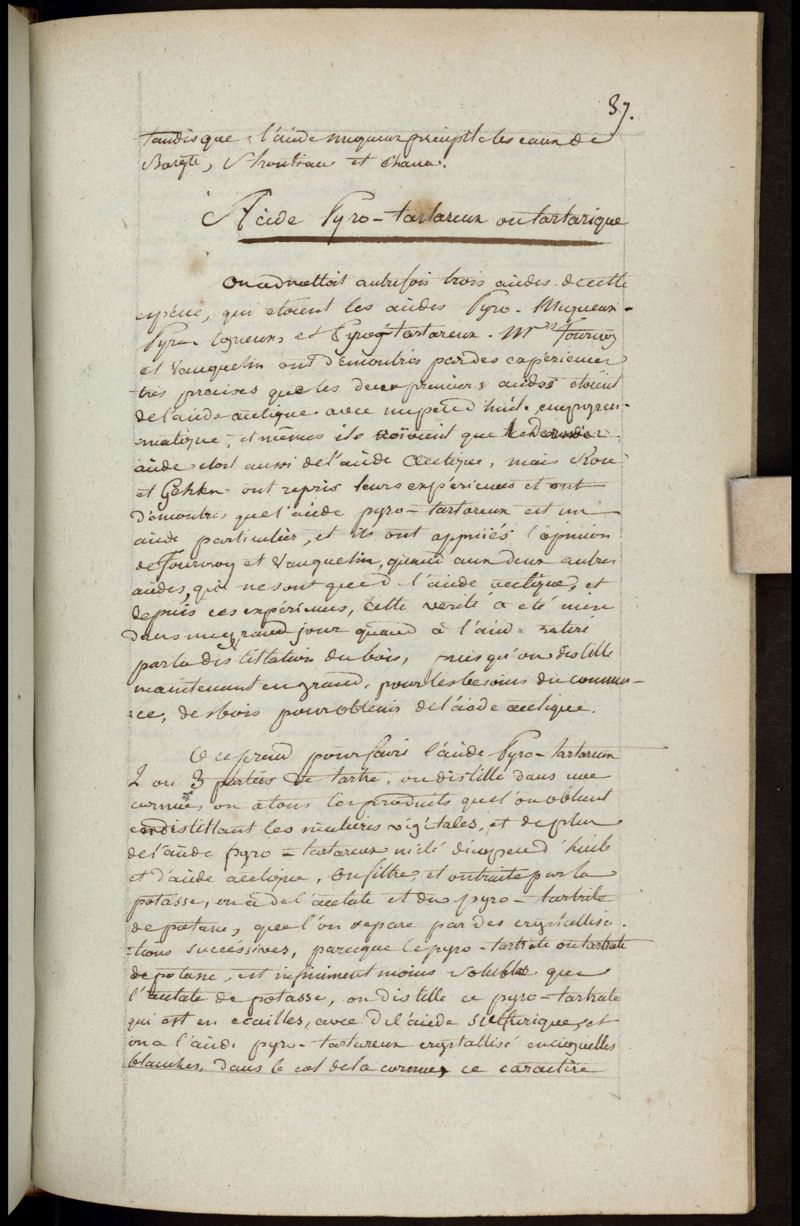 37.
tandisque l'acide muqueux precipite les eaux de
Baryte, Strontiane et chaux.
Acide Pyro-tartareux ou tartarique
On admettoit autrefois trois acides de cette
espéce, qui etoient les acides Pyro-Muqueux-
Pyro-ligneux, et Pyro-tartareux. Mrs Fourcroy
et Vauquelin ont démontrés par des expériences
très precises que les deux premiers acides etoient
de l'acide acetique avec un peu d'huile empyreu-
matique, et mêmes ils que le dernier
acide etoit aussi de l'acide acetique, mais Rose
et Gehlen ont repris leurs expériences et ont
démontrés que l'acide pyro-tartareux est un
acide particulier, et ils ont appuiés l'opinion
de Fourcroy et Vauquelin, quand aux deux autres
acides, qui ne sont que de l'acide acetique, et
depuis ces expériences, cette verité a eté mise
dans un grand jour quand à l'acide retiré
par la distillation du bois, puisqu'on distille
maintenant en grand, pour les besoins du commer-
ce, des bois pour obtenir de l'acide acetique.
On prend pour faire l'acide Pyro-tartareux
2 ou 3 parties de tartre, on distille dans une
cornue, on a tous les produits que l'on obtient
en distillant les matieres végétales, et de plus
de l'acide pyro-tartareux mélé d'un peu d'huile
et d'acide acetique, on filtre, et on traite par la
potasse, on a de l'acetate et du pyro-tartrite
de potasse, que l'on separe par des crystallisa-
tions succéssives, parceque le pyro-tartrate ou tartrate
de potasse, est infiniment moins soluble que
l'acetate de potasse, on distille ce pyro-tartrate
qui est en ecailles, avec de l'acide sulfurique, et
on a l'acide pyro-tartareux crystallisé en aiguilles
blanches, dans le col de la cornue, ce caractère